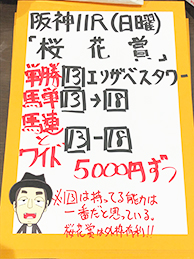 阪神11R(日曜)
「桜花賞」
単勝 13 エリザベスタワー
馬単 13→18
馬連 13-18
と
ワイド
5000円ずつ
※13は持ってる能力は
一番だと思っている。
桜花賞は外枠有利!!